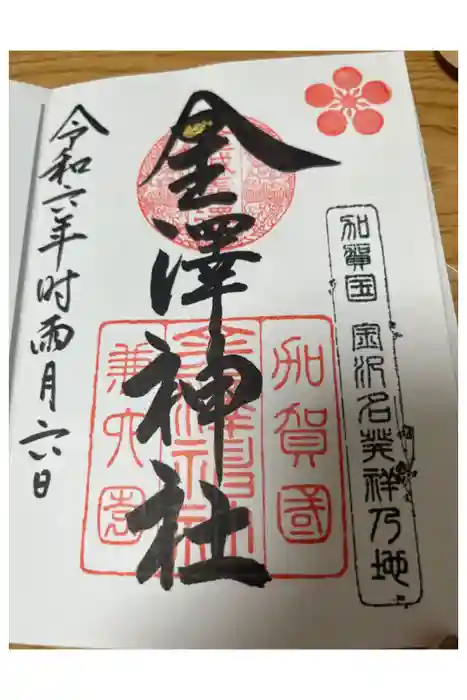 加賀国 金沢名発祥乃地
金澤神社
加賀國
金澤神社
兼六園
令和六年时雨月六日